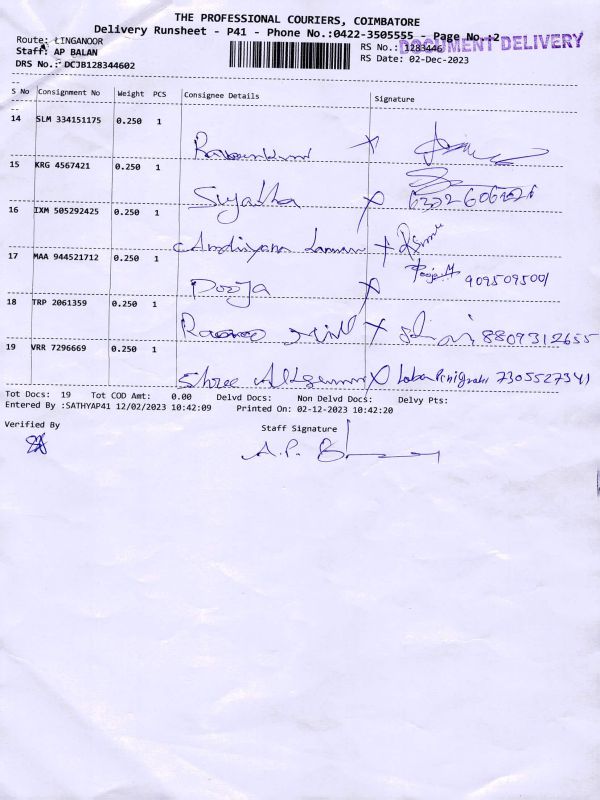 THE PROFESSIONAL COURIERS, COIMBATORE
Delivery Runsheet - P41 - Phone No.:0422-3505555 - Page No.:2
DOCUMENT DELIVERY
Route: LINGANOOR
RS No.: 1283446
Staff: AP BALAN
RS Date: 02-Dec-2023
DRS No.: DCJB128344602
S No Consignment No Weight PCS Consignee Details Signature
14 SLM 334151175 0.250 1
15 KRG 4567421 0.250 1
Sujatha X
16 IXM 505292425 0.250 1
17 MAA 944521712 0.250 1
Pooja X 9095095001
18 TRP 2061359 0.250 1
X 8809312655
19 VRR 7296669 0.250 1
Shree X 7305527341
Tot Docs: 19 Tot COD Amt: 0.00 Delvd Docs: Non Delvd Docs: Delvy Pts:
Entered By :SATHYAP41 12/02/2023 10:42:09 Printed On: 02-12-2023 10:42:20
Verified By Staff Signature
A.P.